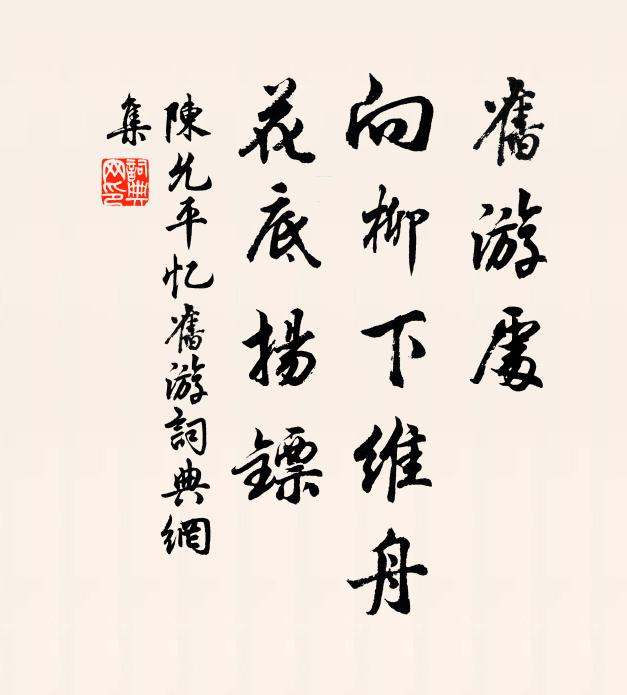 舊游處
向柳下維舟
花底揚鑣
陳允平忆舊游詞典網
集
詞典
网印